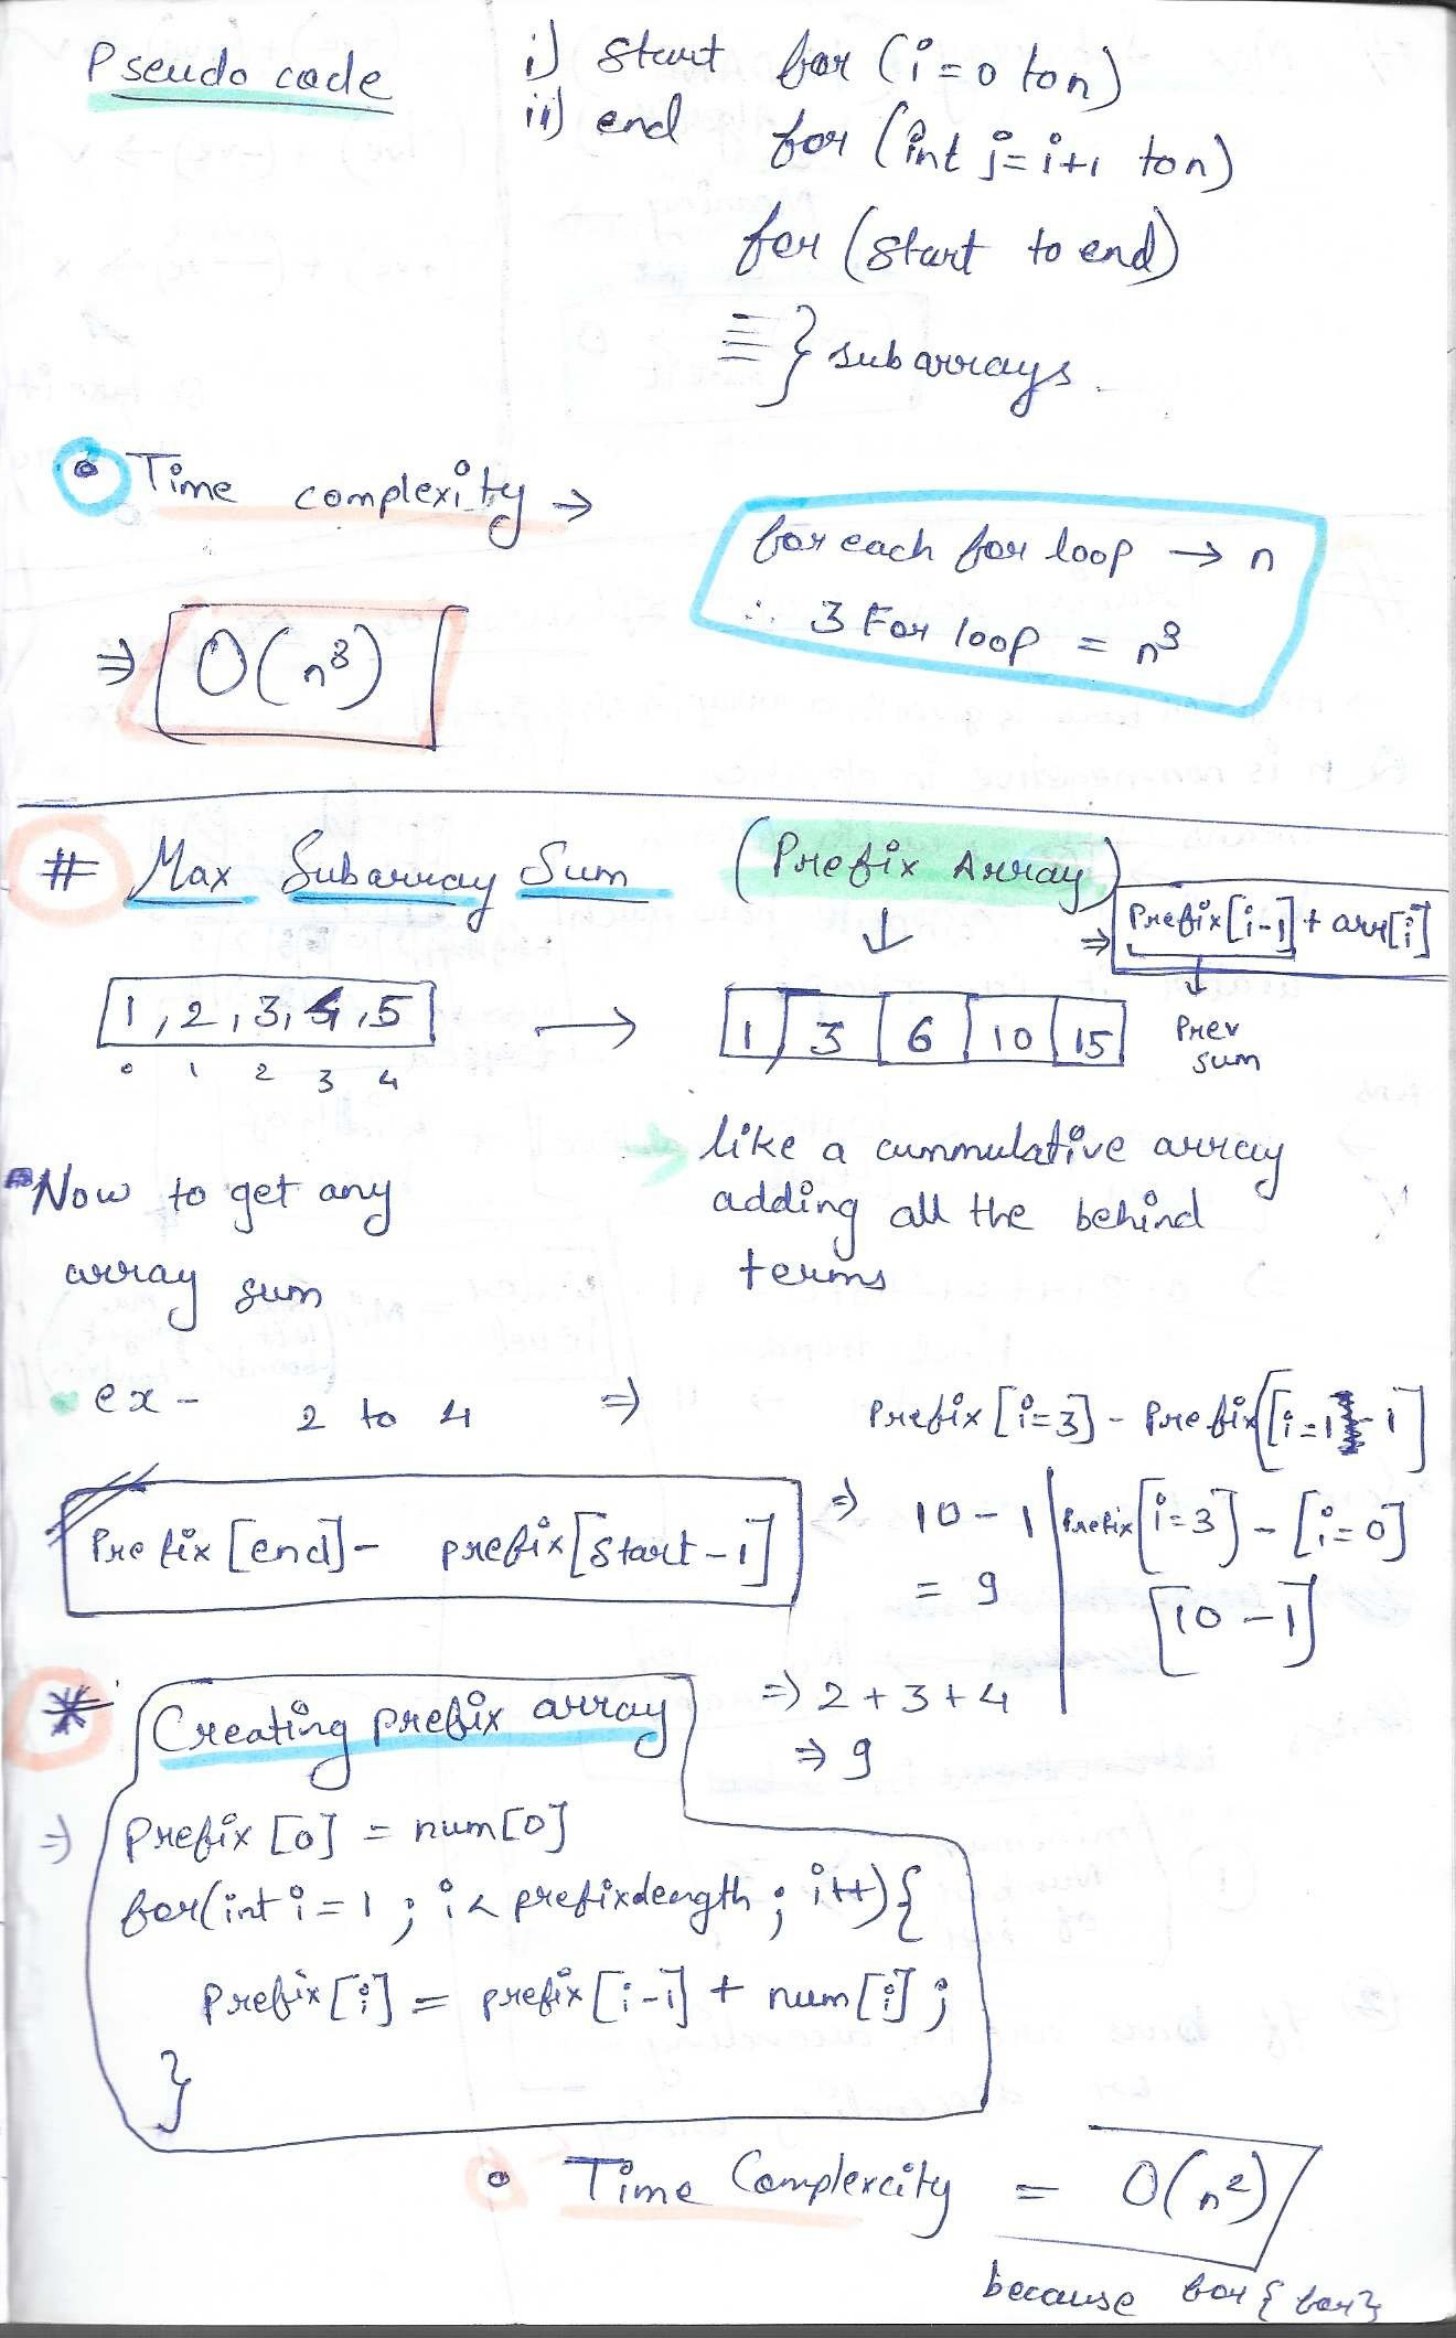 Pseudo code
i) start for (i=0 to n)
ii) end for (int j=i+1 to n)
for (start to end)
≡ } subarrays.
• Time complexity →
for each for loop → n
∴ 3 For loop = n³
⇒ O(n³)
# Max Subarray Sum (Prefix Array)
⇒ Prefix[i-1] + arr[i]
↓
Prev
sum
1, 2, 3, 4, 5 → 1 3 6 10 15
0 1 2 3 4
→ like a cummulative array
adding all the behind
terms
Now to get any
array sum
• ex - 2 to 4 ⇒ Prefix [i=3] - Prefix [i=1 - 1]
Prefix [end] - prefix [start-1]
⇒ 10 - 1
= 9
Prefix [i=3] - [i=0]
[10 - 1]
⇒ 2 + 3 + 4
⇒ 9
* Creating prefix array
⇒ Prefix [0] = num[0]
for(int i = 1 ; i < prefix.length ; i++) {
Prefix [i] = prefix [i-1] + num [i] ;
}
• Time Complexcity = O(n²)
because for { for }